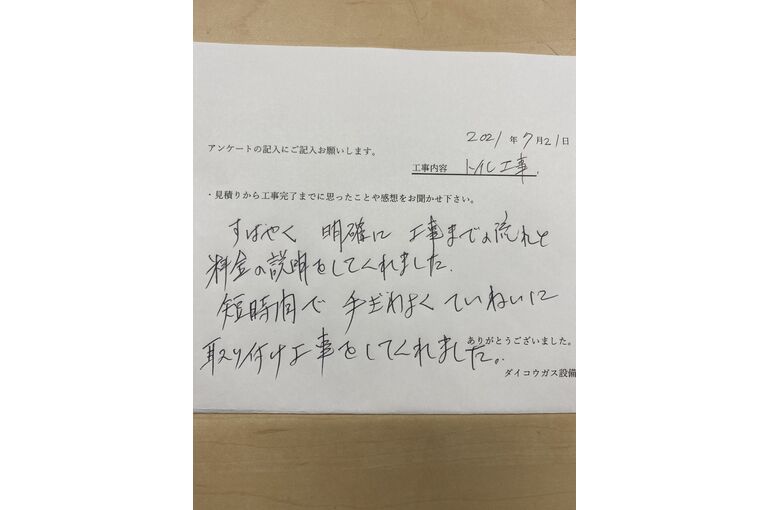 2021年7月21日
アンケートの記入にご記入お願いします。
工事内容 トイレ工事.
・見積りから工事完了までに思ったことや感想をお聞かせ下さい。
すばやく 明確に 工事までの流れと
料金の説明をしてくれました.
短時間で 手ぎわよく ていねいに
ありがとうございました。
取り付け工事をしてくれました。
ダイコウガス設備